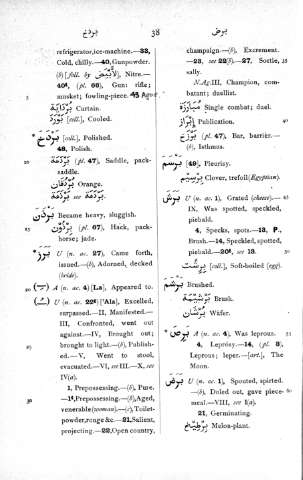 بردخ 38 برض
refrigerator, ice-machine.—33,
Cold, chilly.—40, Gunpowder.
(b) [foll. by الأبيض], Nitre.—
40⁴, (pl. 66), Gun; rifle;
musket; fowling-piece. 43 Ague
Curtain.
[coll.], Cooled.
[coll.], Polished.
48, Polish.
(pl. 47), Saddle, pack-
saddle.
Orange.
see
Became heavy, sluggish.
(pl. 67), Hack, pack-
horse; jade.
U (n. ac. 27), Came forth,
issued.—(b), Adorned, decked
(bride).
A (n. ac. 4) [La], Appeared to.
U (n. ac. 22²) ['Ala], Excelled,
surpassed.—II, Manifested.—
III, Confronted, went out
against.—IV, Brought out;
brought to light.—(b), Publish-
ed.—V, Went to stool,
evacuated.—VI, see III.—X, see
IV(a).
1, Prepossessing.—(b), Pure.
—1⁴, Prepossessing.—(b), Aged,
venerable (woman).—(c), Toilet-
powder, rouge &c.—21, Salient,
projecting.—22, Open country,
champaign.—(b), Excrement.
—23, see 22(b).—27, Sortie,
sally.
N. Ag. III, Champion, com-
batant; duellist.
مبارزة Single combat; duel.
إبراز Publication.
برزخ (pl. 47), Bar, barrier.—
(b), Isthmus.
[49], Pleurisy.
برسيم Clover, trefoil (Egyptian).
U (n. ac. 1), Grated (cheese).—
IX, Was spotted, speckled,
piebald.
4, Specks, spots.—13, P.,
Brush.—14, Speckled, spotted,
piebald.—20⁴, see 13.
برشت [coll.], Soft-boiled (egg).
برشم Brushed.
Brush.
برشان Wafer.
برص A (n. ac. 4), Was leprous.
4, Leprosy.—14, (pl. 8),
Leprous; leper.—[art.], The
Moon.
برض U (n. ac. 1), Spouted, spirted.
—(b), Doled out, gave piece-
meal.—VIII, see I(a).
21, Germinating.
Melon-plant.